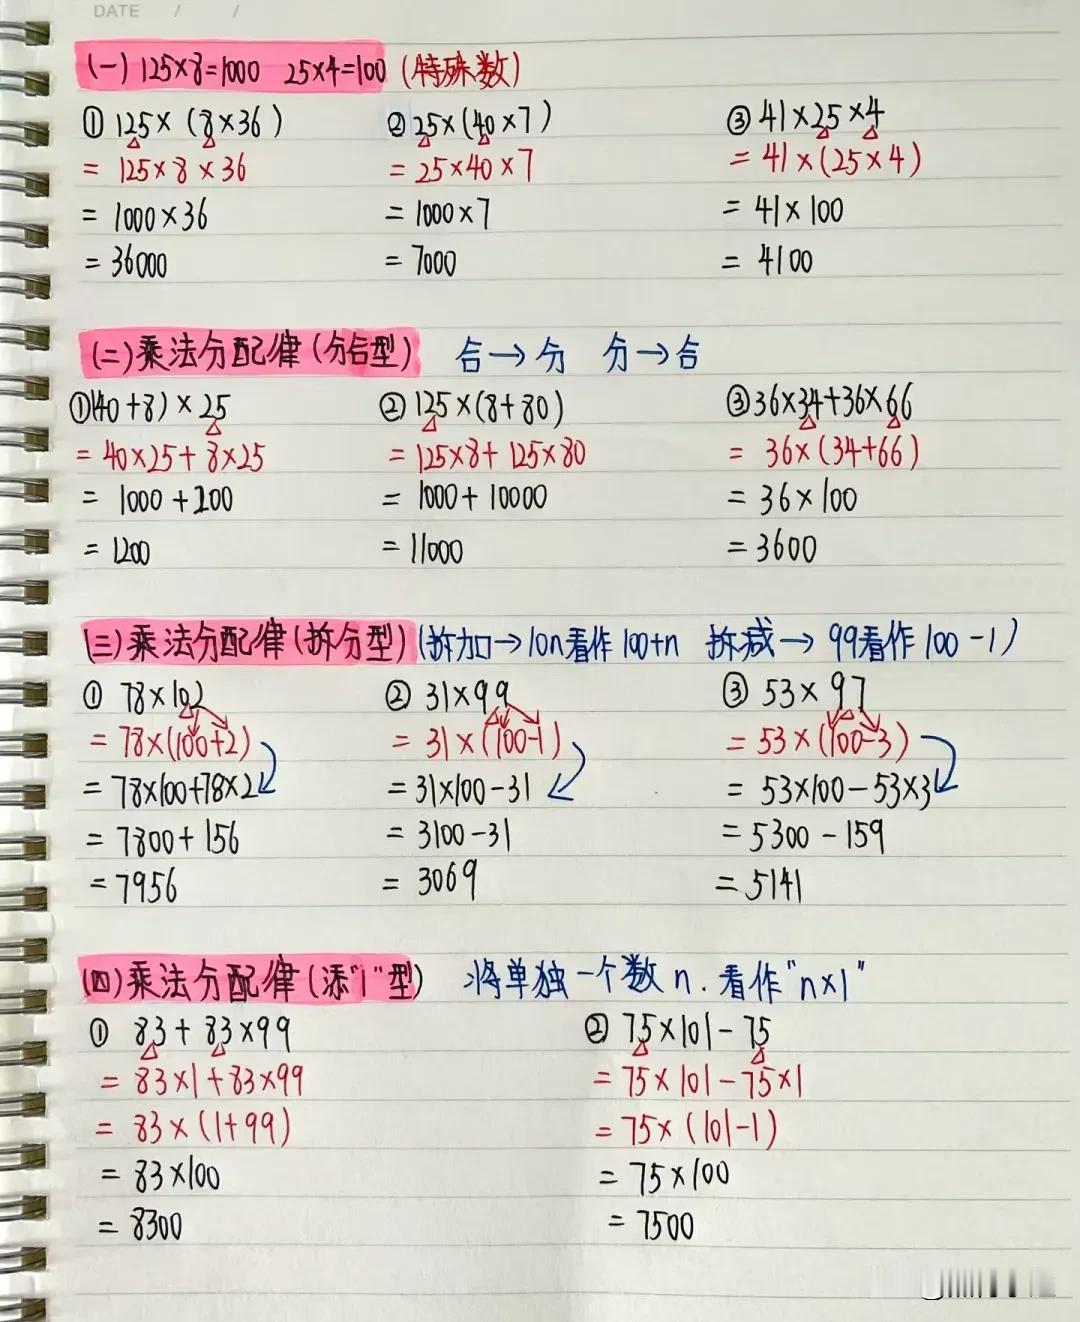 DATE / /
(一) 125×8=1000 25×4=100 (特殊数)
① 125×(8×36)
= 125×8×36
= 1000×36
= 36000
② 25×(40×7)
= 25×40×7
= 1000×7
= 7000
③ 41×25×4
= 41×(25×4)
= 41×100
= 4100
(二) 乘法分配律(分合型) 合→分 分→合
①(40+8)×25
= 40×25+8×25
= 1000+200
= 1200
② 125×(8+80)
= 125×8+125×80
= 1000+10000
= 11000
③ 36×34+36×66
= 36×(34+66)
= 36×100
= 3600
(三) 乘法分配律(拆分型)(拆加→10n看作100+n 拆减→99看作100-1)
① 78×102
= 78×(100+2)
= 78×100+78×2
= 7800+156
= 7956
② 31×99
= 31×(100-1)
= 31×100-31
= 3100-31
= 3069
③ 53×97
= 53×(100-3)
= 53×100-53×3
= 5300-159
= 5141
(四) 乘法分配律(添"1"型) 将单独一个数n.看作"n×1"
① 83+83×99
= 83×1+83×99
= 83×(1+99)
= 83×100
= 8300
② 75×101-75
= 75×101-75×1
= 75×(101-1)
= 75×100
= 7500